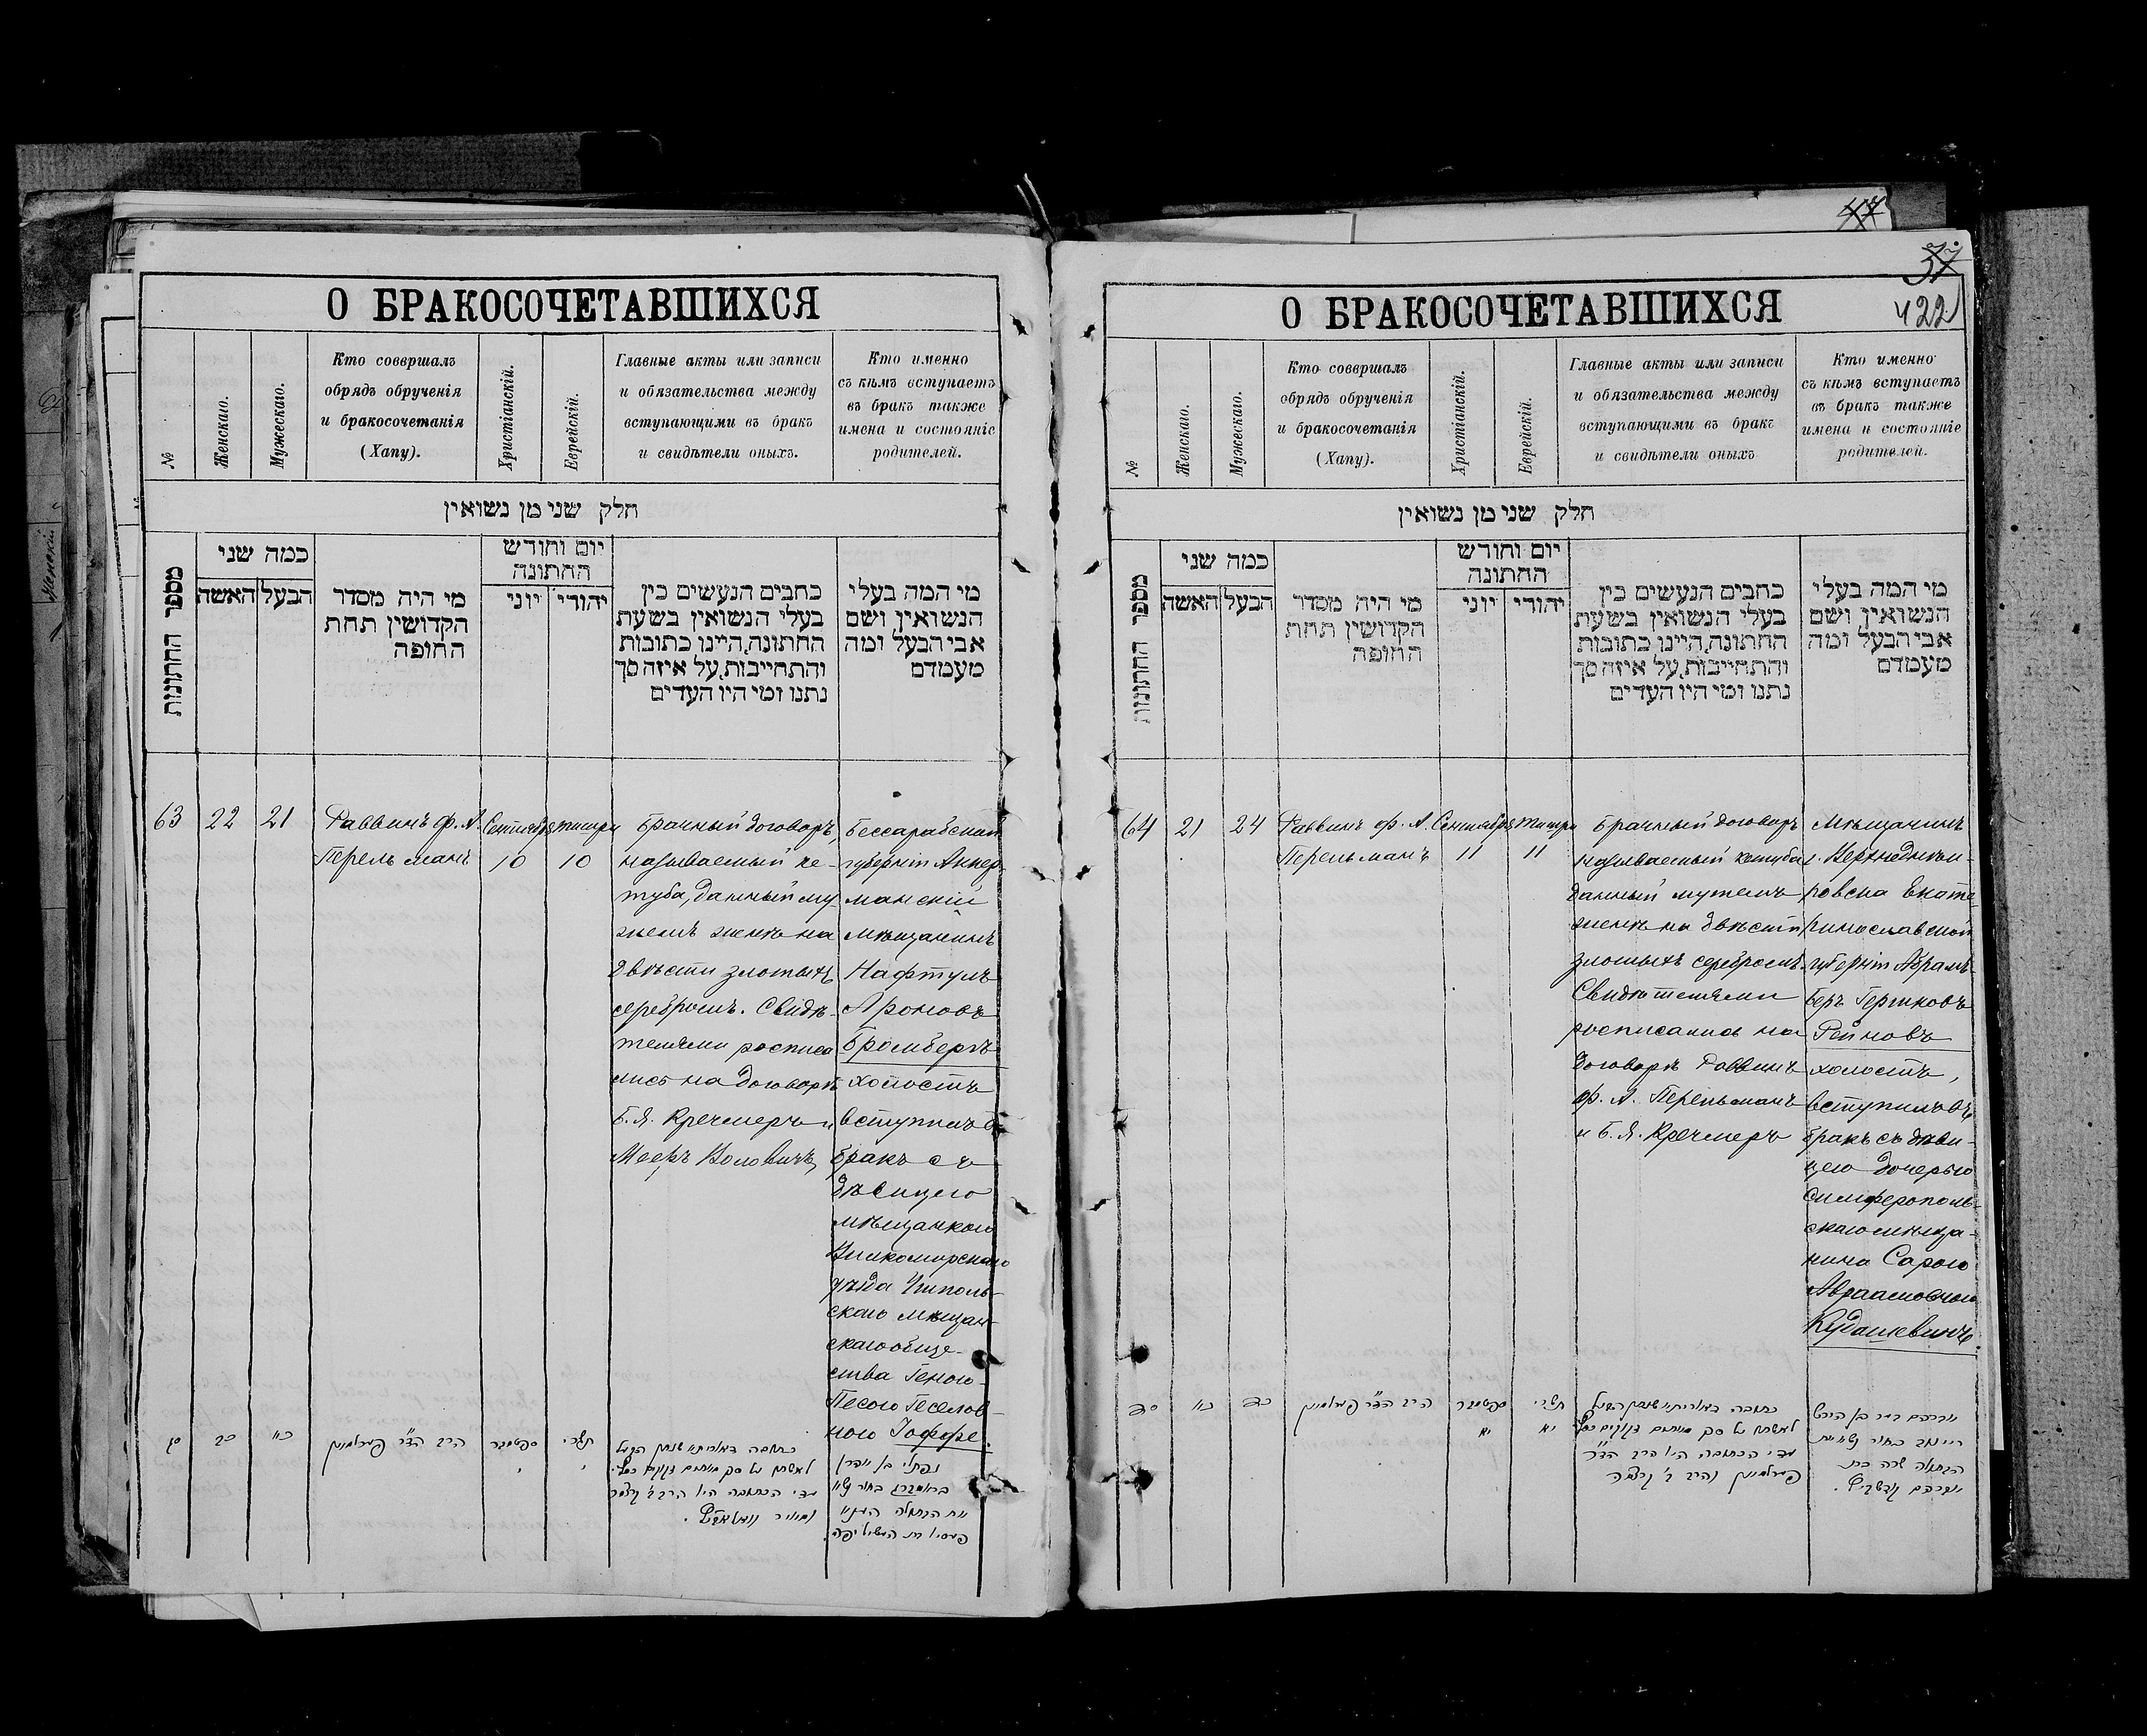 47
37
О БРАКОСОЧЕТАВШИХСЯ
№
Женскаго.
Мужескаго.
Кто совершалъ
обрядъ обрученія
и бракосочетанія
(Хапу).
Христіанскій.
Еврейскій.
Главные акты или записи
и обязательства между
вступающими въ бракъ
и свидѣтели оныхъ.
Кто именно
съ кѣмъ вступаетъ
въ бракъ также
имена и состояніе
родителей.
חלק שני מן נשואין
מספר החתונות
כמה שני
האשה
הבעל
מי היה מסדר
הקדושין תחת
החופה
יום וחודש
החתונה
יוני
יהודי
כתבים הנעשים בין
בעלי הנשואין בשעת
החתונה, היינו כתובות
והתחייבות, על איזה סך
נתנו ומי היו העדים
מי המה בעלי
הנשואין ושם
אבי הבעל ומה
מעמדם
63
22
21
Раввинъ ф. А.
Перельманъ
Сентября
10
Тишри
10
Брачный договоръ,
называемый ке-
туба, данный му-
жемъ женѣ на
двѣсти злотыхъ
серебромъ. Свидѣ-
телями росписа
лись на договорѣ
Б. Я. Кречмеръ и
Мееръ Воловичъ,
Бессарабской
губерніи Аккер-
манскій
мѣщанинъ
Нафтулъ
Ароновъ
Бромбергъ
холостъ
вступилъ въ
бракъ съ
дѣвицею
мѣщанкою
Вилкомирскаго
уѣзда
скаго мѣщан-
скаго обще-
ства Геною-
Песою Геселов-
ною Іоффе.
סג
כב
כא
הרב הד״ר פערלמאן
ספטמבר
י
תשרי
י
נפתלי בן אהרן
בראמבערג בחור נשא
את הבתולה
О БРАКОСОЧЕТАВШИХСЯ
422
№
Женскаго.
Мужескаго.
Кто совершалъ
обрядъ обрученія
и бракосочетанія
(Хапу).
Христіанскій.
Еврейскій.
Главные акты или записи
и обязательства между
вступающими въ бракъ
и свидѣтели оныхъ
Кто именно
съ кѣмъ вступаетъ
въ бракъ также
имена и состояніе
родителей.
חלק שני מן נשואין
מספר החתונות
כמה שני
האשה
הבעל
מי היה מסדר
הקדושין תחת
החופה
יום וחודש
החתונה
יוני
יהודי
כתבים הנעשים בין
בעלי הנשואין בשעת
החתונה, היינו כתובות
והתחייבות, על איזה סך
נתנו ומי היו העדים
מי המה בעלי
הנשואין ושם
אבי הבעל ומה
מעמדם
64
21
24
Раввинъ ф. А.
Перельманъ
Сентября
11
Тишри
11
Брачный договоръ
называемый кетуба
данный мужемъ
женѣ на двѣсти
злотыхъ серебромъ.
Свидѣтелями
росписались на
договорѣ Раввинъ
ф. А. Перельманъ
и Б. Я. Кречмеръ
Мѣщанинъ
г. Верхнеднѣп-
ровска Екате-
ринославской
губерніи Абрамъ-
Беръ Гершковъ
Рейновъ
холостъ,
вступилъ въ
бракъ съ дѣви-
цею дочерью
симферополь-
скаго мѣща-
нина Сарою
Авраамовною
Кудашевичъ.
סד
כא
כד
הרב הד״ר פערלמאן
ספטמבר
יא
תשרי
יא
הבתולה שרה בת